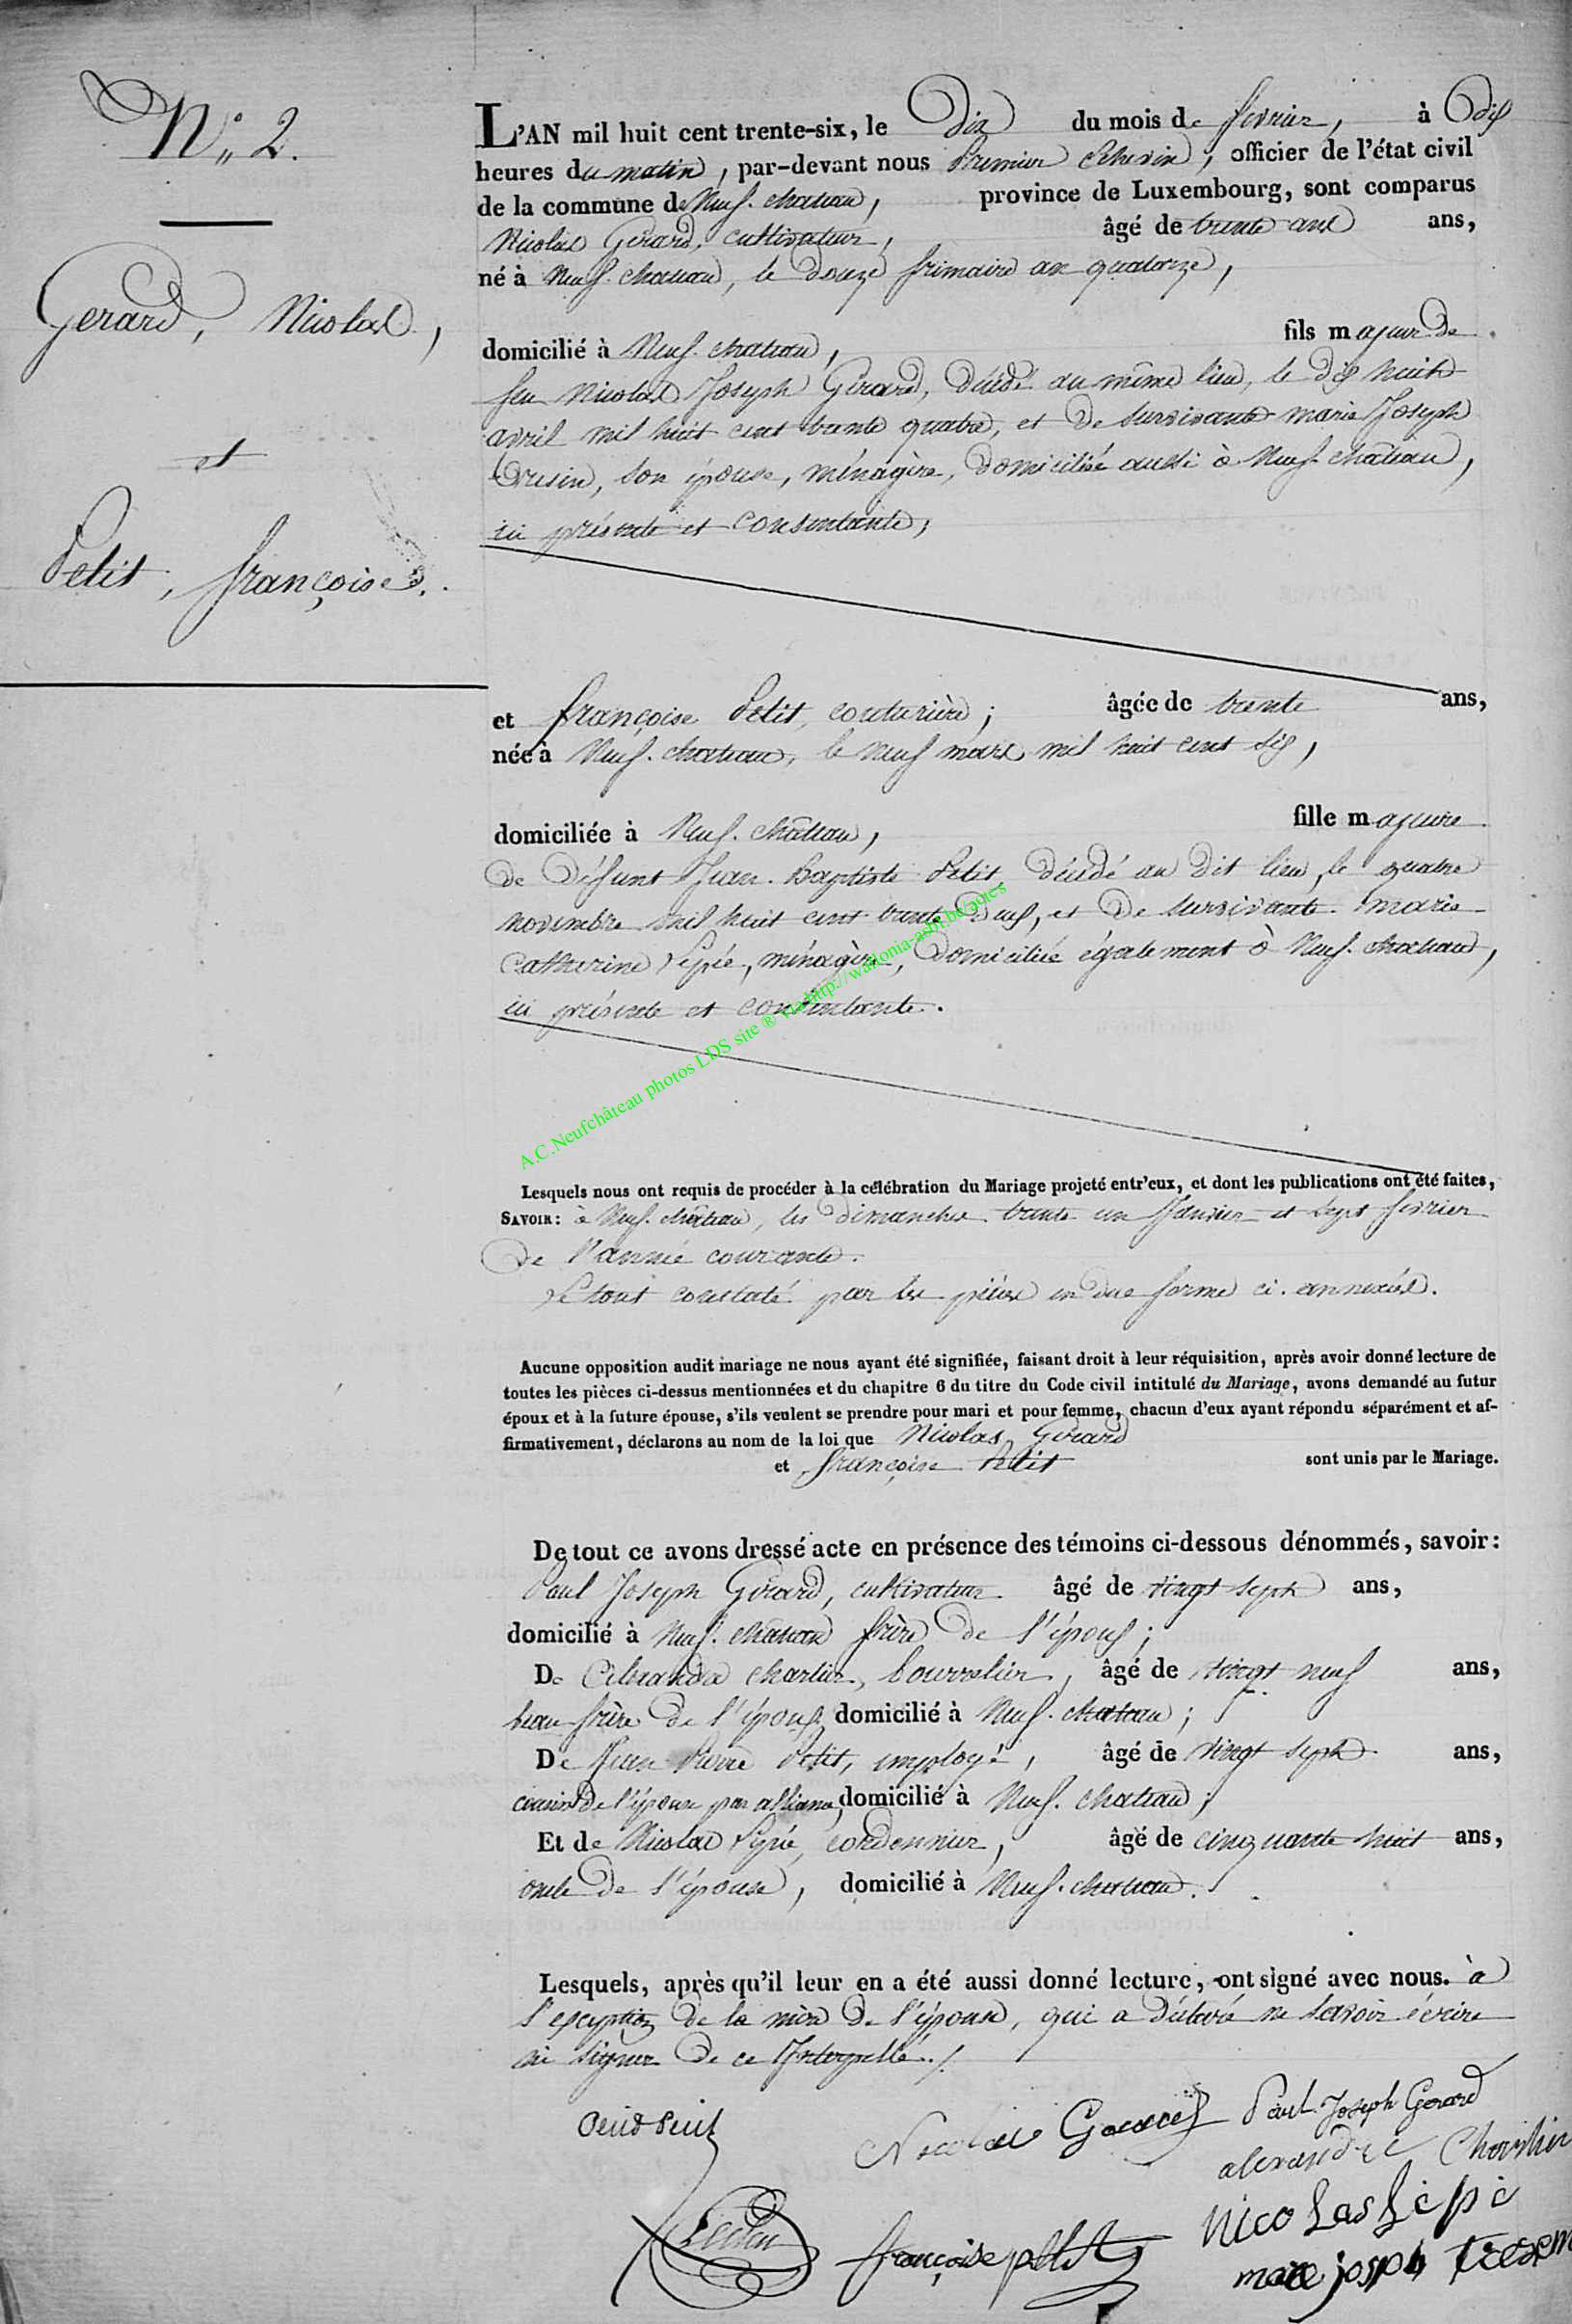 N° 2.
Gerard, Nicolas,
et
Petit, françoise.
L'AN mil huit cent trente-six, le Dix du mois de février, à Dix
heures du matin, par-devant nous Premier Echevin, officier de l'état civil
de la commune de Neuf-chateau, province de Luxembourg, sont comparus
Nicolas Gérard, cultivateur, âgé de trente ans ans,
né à Neuf-chateau, le douze frimaire an quatorze,
domicilié à Neuf-chateau, fils majeur de
feu Nicolas Joseph Gérard, décédé au même lieu, le dix huit
avril mil huit cent trente quatre, et de survivante marie Joseph
son épouse, ménagère, domiciliée aussi à Neuf-château,
ici présente et consentante;
et françoise Petit, couturière; âgée de trente ans,
née à Neuf-chateau, le neuf mars mil huit cent six,
domiciliée à Neuf-château, fille majeure
de défunt Jean-Baptiste Petit, décédé au dit lieu, le quatre
novembre mil huit cent trente deux, et de survivante marie
catherine Lepié, ménagère, domiciliée également à Neuf-chateau,
ici présente et consentante.
A.C.Neufchâteau photos LDS site ® via http://wallonia-asbl.be/actes
Lesquels nous ont requis de procéder à la célébration du Mariage projeté entr'eux, et dont les publications ont été faites,
SAVOIR: à Neuf-château, les dimanches trente un Janvier et sept février
de l'année courante.
Le tout constaté par les pièces en due forme ci-annexées.
Aucune opposition audit mariage ne nous ayant été signifiée, faisant droit à leur réquisition, après avoir donné lecture de
toutes les pièces ci-dessus mentionnées et du chapitre 6 du titre du Code civil intitulé du Mariage, avons demandé au futur
époux et à la future épouse, s'ils veulent se prendre pour mari et pour femme, chacun d'eux ayant répondu séparément et af-
firmativement, déclarons au nom de la loi que Nicolas Gérard
et françoise Petit sont unis par le Mariage.
De tout ce avons dressé acte en présence des témoins ci-dessous dénommés, savoir:
Paul Joseph Gérard, cultivateur âgé de vingt sept ans,
domicilié à Neuf-chateau frère de l'époux;
De charlier, bourrelier, âgé de vingt neuf ans,
beau-frère de l'époux, domicilié à Neuf-chateau;
De Jean Pierre Petit, employé, âgé de vingt sept ans,
cousin de l'épouse par alliance, domicilié à Neuf-chateau;
Et de Nicolas Lepié, cordonnier, âgé de cinquante huit ans,
oncle de l'épouse, domicilié à Neuf-chateau.
Lesquels, après qu'il leur en a été aussi donné lecture, ont signé avec nous. à
l'exception de la mère de l'épouse, qui a déclaré ne savoir écrire
ni signer de ce Interpellé./.
Nicolas Gerard Paul Joseph Gerard
alexandre Charlier
Nicolas Lepié
françoise petit
marie joseph